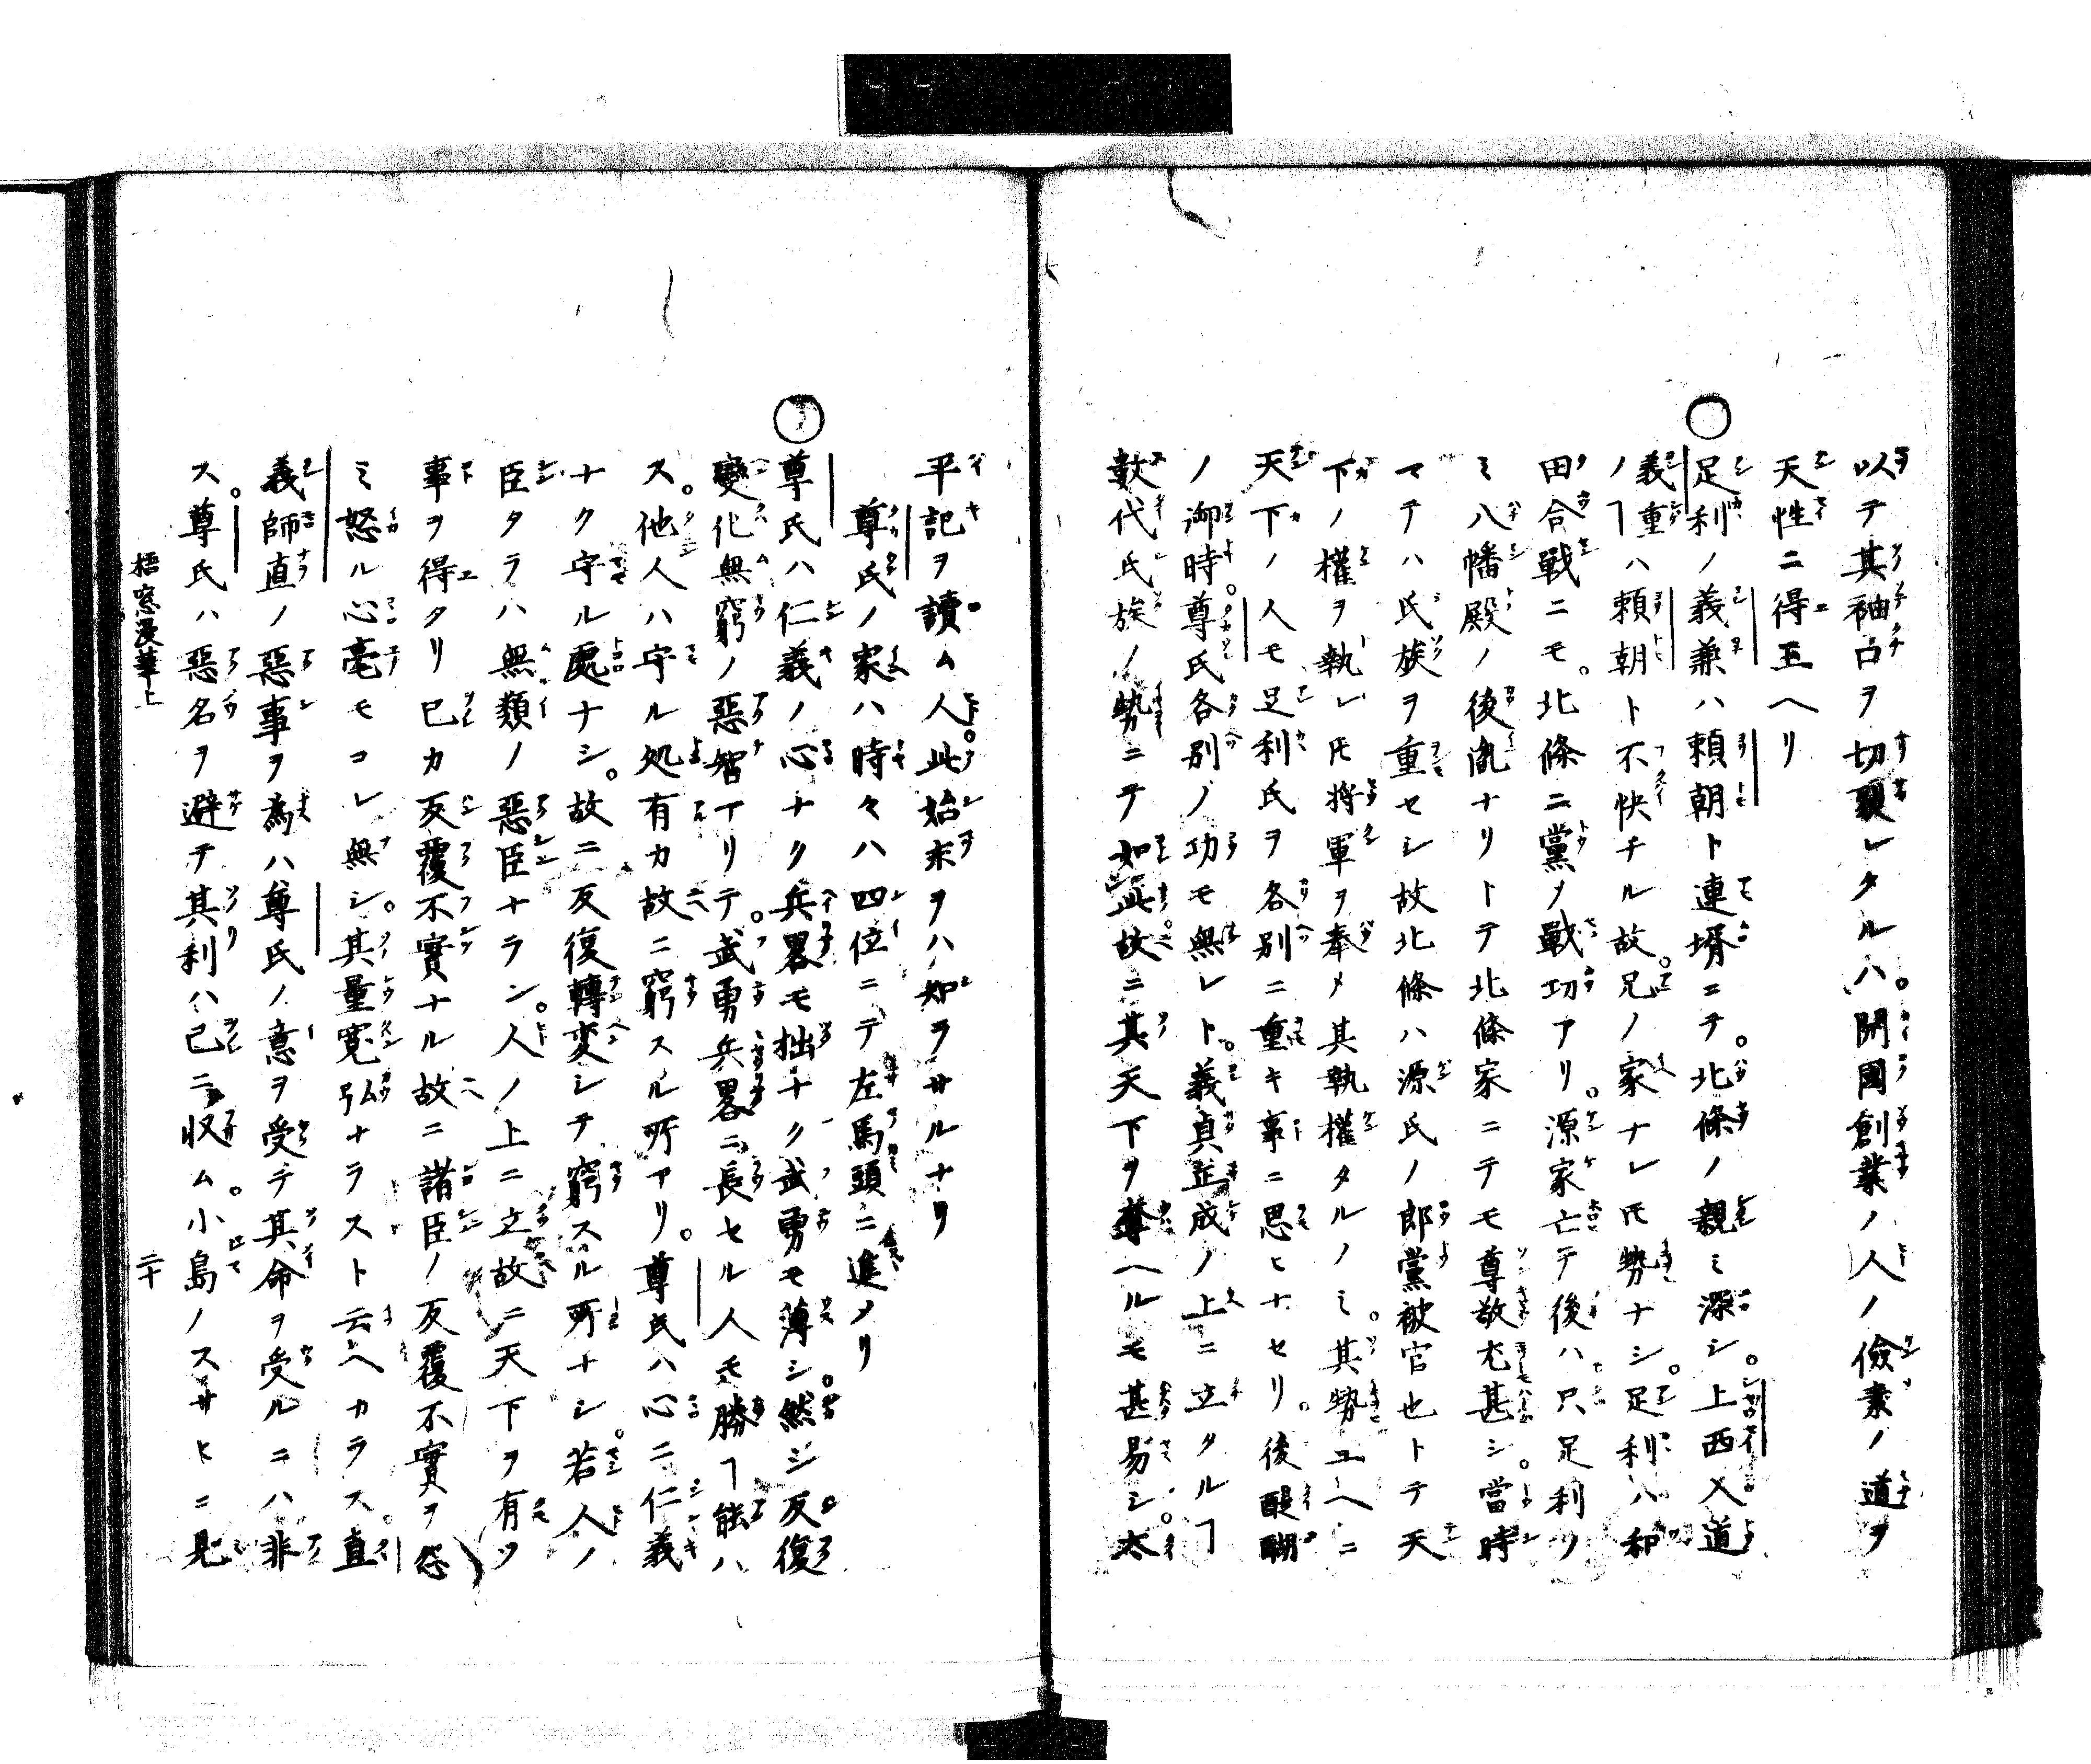 以テ其袖口ヲ切裂レタルハ。開國創業ノ人ノ儉素ノ道ヲ
天性ニ得玉ヘリ
○足利ノ義兼ハ頼朝ト連壻ニテ。北條ノ親ミ深シ。上西入道
義重ハ頼朝ト不快ナル故。兄ノ家ナレ𪜈勢ナシ。足利ハ和
田合戰ニモ。北條ニ黨ノ戰功アリ。源家亡テ後ハ只足利ノ
ミ八幡殿ノ後胤ナリトテ北條家ニテモ尊敬尤甚シ。當時
マテハ氏族ヲ重セシ故北條ハ源氏ノ郎黨被官也トテ天
下ノ權ヲ執レ𪜈将軍ヲ奉メ其執權タルノミ。其勢ユヘニ
天下ノ人モ足利氏ヲ各別ニ重キ事ニ思ヒナセリ。後醍醐
ノ御時。尊氏各別ノ功モ無レト。義貞正成ノ上ニ立タルヿ
數代氏族ノ勢ニテ如此故ニ其天下ヲ奪ヘルモ甚易シ。太
平記ヲ讀ム人。此始末ヲハ知ラサルナリ
尊氏ノ家ハ時々ハ四位ニテ左馬頭ニ進メリ
○尊氏ハ仁義ノ心ナク兵畧モ拙ナク武勇モ薄シ。然シ反復
變化無窮ノ惡智アリテ。武勇兵畧ニ長セル人モ勝ヿ能ハ
ス。他人ハ守ル処有カ故ニ窮スル所アリ。尊氏ハ心ニ仁義
ナク守ル處ナシ。故ニ反復轉変シテ窮スル所ナシ。若人ノ
臣タラハ無類ノ惡臣ナラン。人ノ上ニ立故ニ天下ヲ有ツ
事ヲ得タリ已カ反覆不實ナル故ニ諸臣ノ反覆不實ヲ怨
ミ怒ル心毫モコレ無シ。其量寛弘ナラスト云ヘカラス。直
義師直ノ惡事ヲ為ハ尊氏ノ意ヲ受テ其命ヲ受ルニハ非
ス。尊氏ハ惡名ヲ避テ其利ハ己ニ収ム。小島ノスサヒニ見
梧窓漫筆上
二十